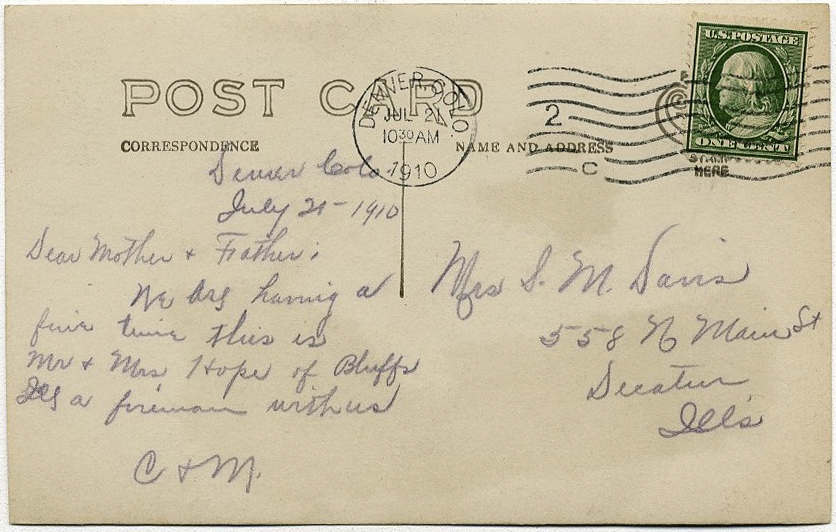 POST CARD
DENVER, COLO.
JUL 21
10 30 AM
1910
2
C
U.S. POSTAGE
ONE CENT
STAMP
HERE
CORRESPONDENCE
NAME AND ADDRESS
Denver Colo
July 21-1910
Dear Mother & Father:
We are having a
fine time this is
Mr & Mrs Hope of Bluffs
Ills a fireman with us
C & M.
Mrs S. M. Davis
558 N Main St
Decatur
Ills